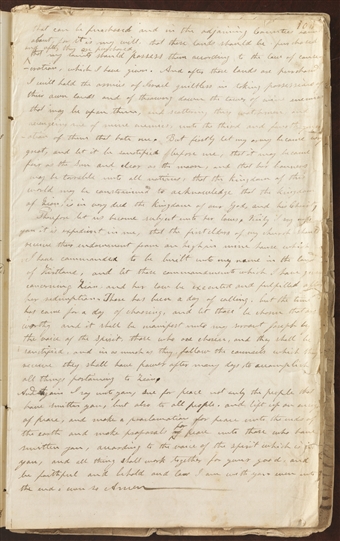 that can be purchased and in the adjoining counties round
about, for it is my will that these lands should be purchased
and after they are purchased
that my saints should possess them according to the laws of consecr
=ration, which I have given. And after these lands are purchased
I will hold the armies of Israel guiltless in taking possession of
their own lands and of throwing down the towers of mine enemies
that may be upon them, and scattering their watchmen, and
avenging me of mine enemies, unto the third and fourth
=ation of them that hate me. But firstly let my army become very
great, and let it be sanctified before me, that it may become
fair as the sun and clear as the moon, and that her banners
may be terrible unto all nations: that the kingdoms of this
world may be constrained to acknowledge that the kingdom
of Zion, is in very deed the kingdom of our God, and his Christ
therefore let us become subject unto her laws. Verily I say unto
you it is expedient in me, that the first elders of my church should
receive their endowment from on high in mine house which
I have commanded to be built unto my name in the land
of Kirtland, and let those commandments which I have given
concerning Zion, and her law be executed and fulfilled after
her redemption. There has been a day of calling, but the time
has come for a day of choosing, and let those be chosen that are
worthy and it shall be manifest unto my servant Joseph by
the voice of the Spirit, those who are chosen, and they shall be
sanctified, and in as much as they follow the counsels which they
receive they shall have power after many days to accomplish
all things pertaining to Zion.
And again I say unto you, sue for peace, not only the people that
have smitten you, but also to all people, and lift up an ensign
of peace, and make a proclamation for peace unto the ends of
the earth, and make proposals for peace unto those who have
smitten you, according to the voice of the spirit which is in
you, and all things shall work together for your good, and
be faithful and behold and lo I am with you even unto
the end; even so Amen